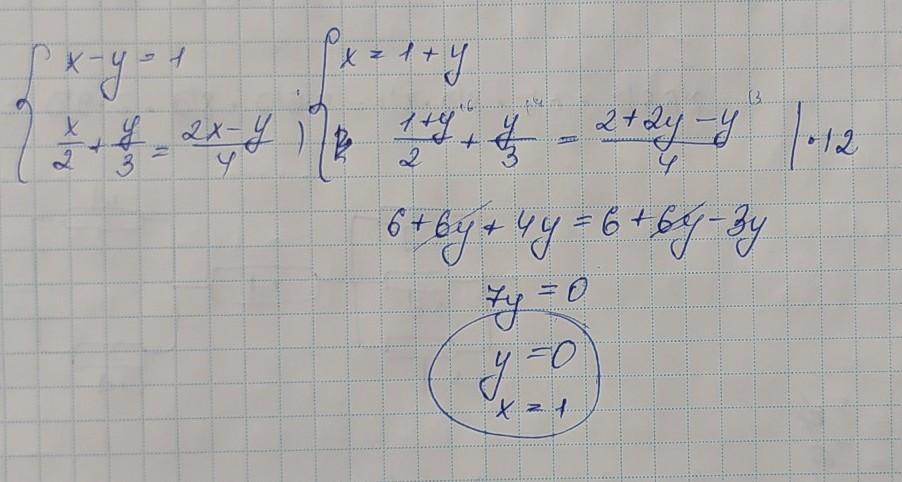 { x - y = 1
x/2 + y/3 = (2x - y)/4 )
{ x = 1 + y
(1+y)/2 ⁽⁶ + y/3 ⁽⁴ = (2+2y-y)/4 ⁽³ | · 12
6 + 6y + 4y = 6 + 6y - 3y
7y = 0
y = 0
x = 1